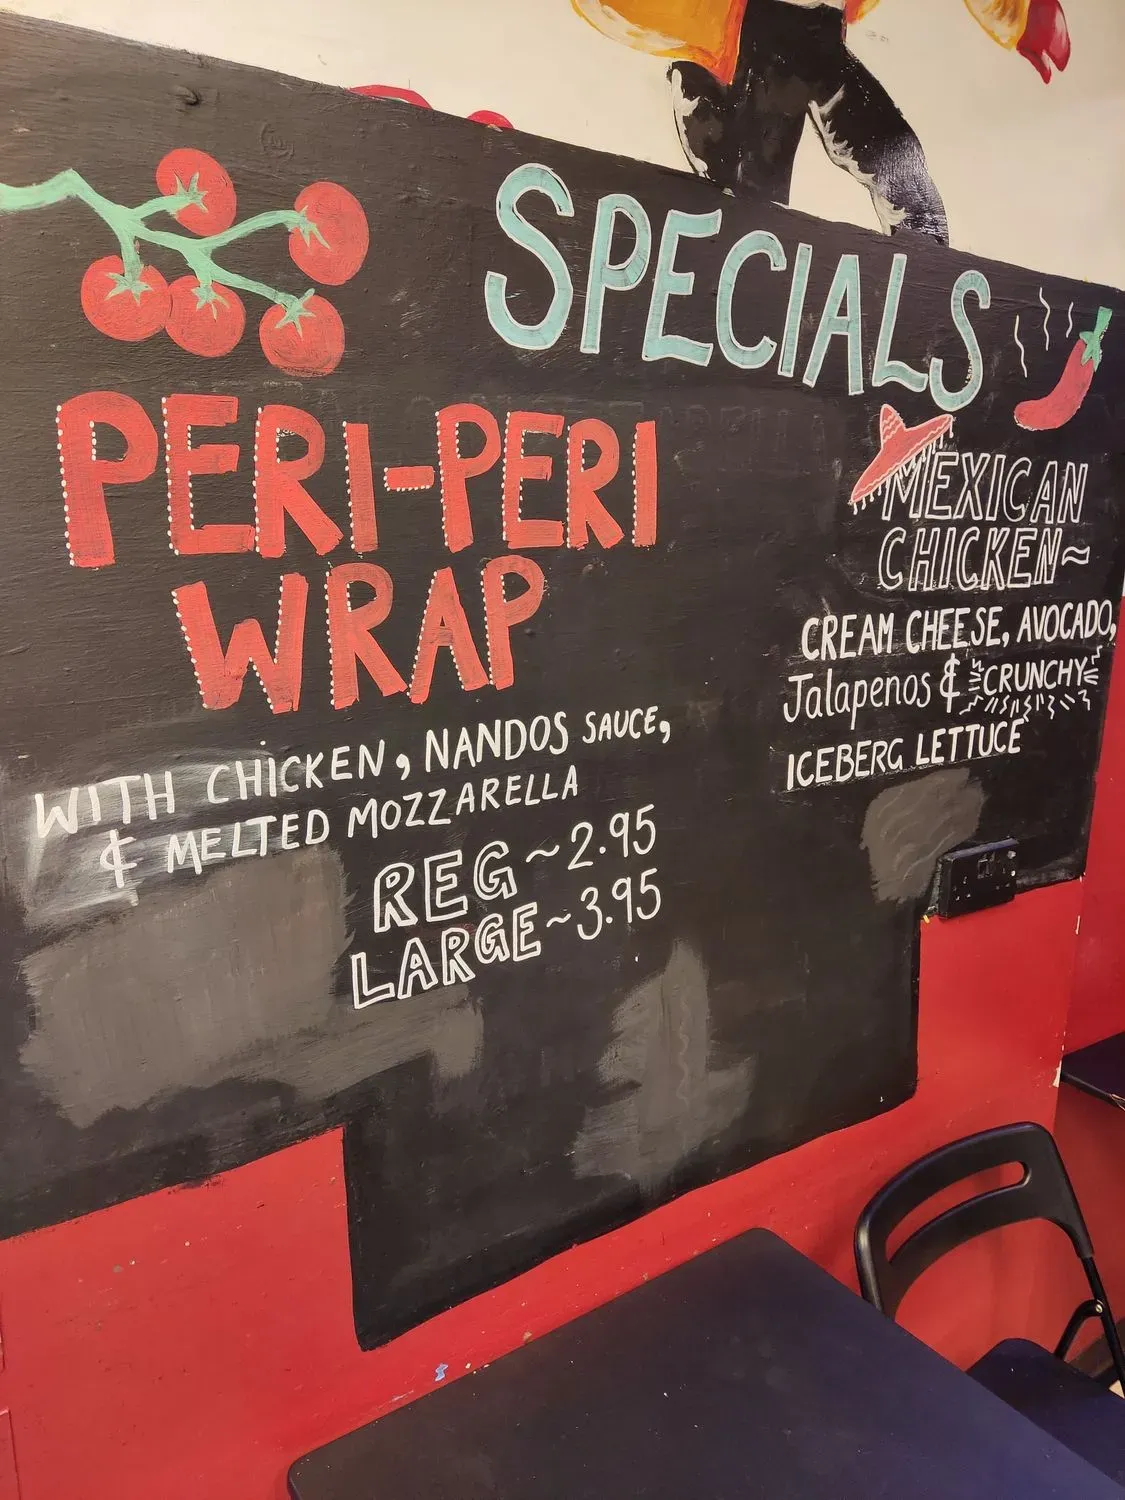 SPECIALS
PERI-PERI
WRAP
WITH CHICKEN, NANDOS SAUCE,
& MELTED MOZZARELLA
REG ~ 2.95
LARGE ~ 3.95
MEXICAN
CHICKEN~
CREAM CHEESE, AVOCADO,
Jalapenos & CRUNCHY
ICEBERG LETTUCE